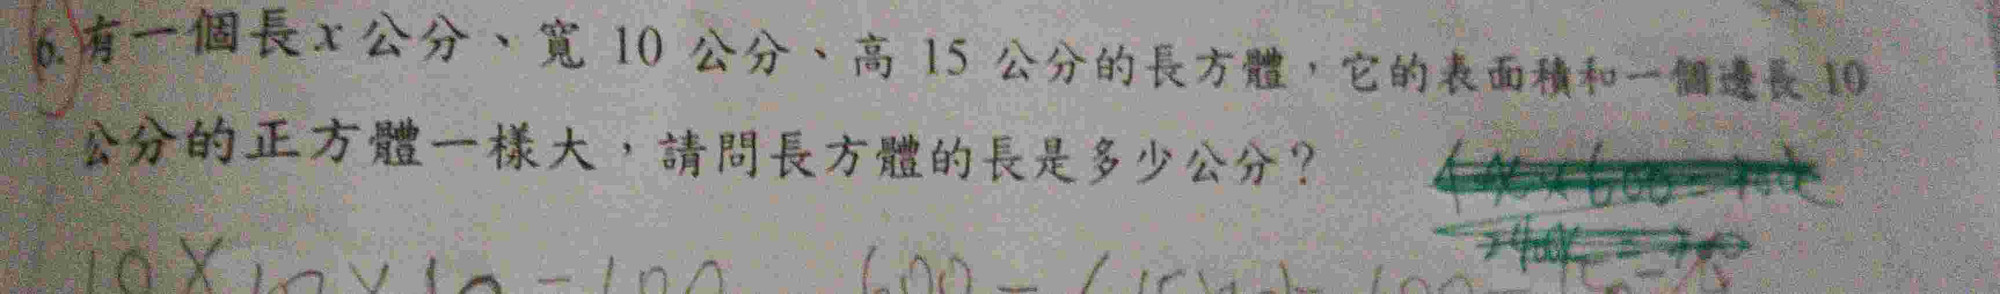 6. 有一個長x公分、寬 10 公分、高 15 公分的長方體，它的表面積和一個邊長 10
公分的正方體一樣大，請問長方體的長是多少公分？